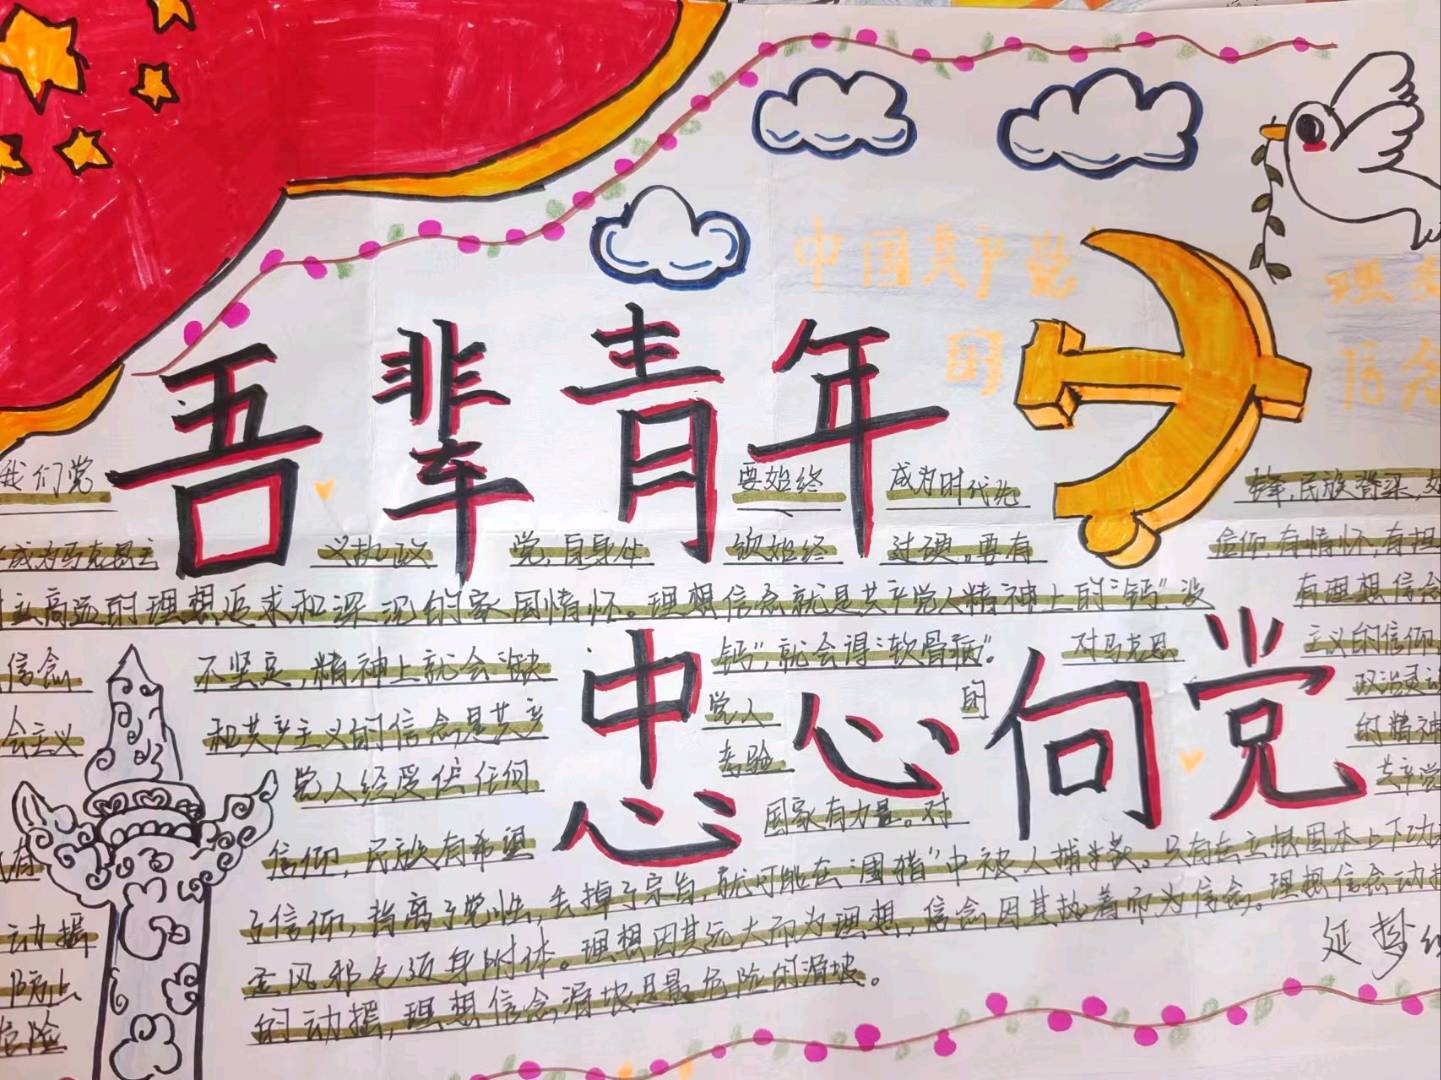 中国共产党
的
理
信念
吾辈青年
我们党
要始终
成为时代先
锋,民族脊梁,
成为马克思主
义执政
党,自身
始终
过硬。要有
信仰,有情怀,有担
立高远的理想追求和深沉的家国情怀。理想信念就是共产党人精神上的“钙”没
有理想信念
信念
不坚定,精神上就会缺
钙”,就会得“软骨病”。
对马克思
主义的信仰
会主义
和共产主义的信念是共产
党人
的
政治灵
的精神
忠心向党
党人经受住任何
考验
共产党
信仰,民族有希望
国家有力量。对
了信仰,背离了党性,丢掉了宗旨,就可能在“围猎”中被人捕获。只有在立根固本上下功
动摇
歪风邪气近身附体。理想因其远大而为理想,信念因其执着而为信念。理想信念动摇
防止
危险
的动摇,理想信念滑坡是最危险的滑坡。
延梦